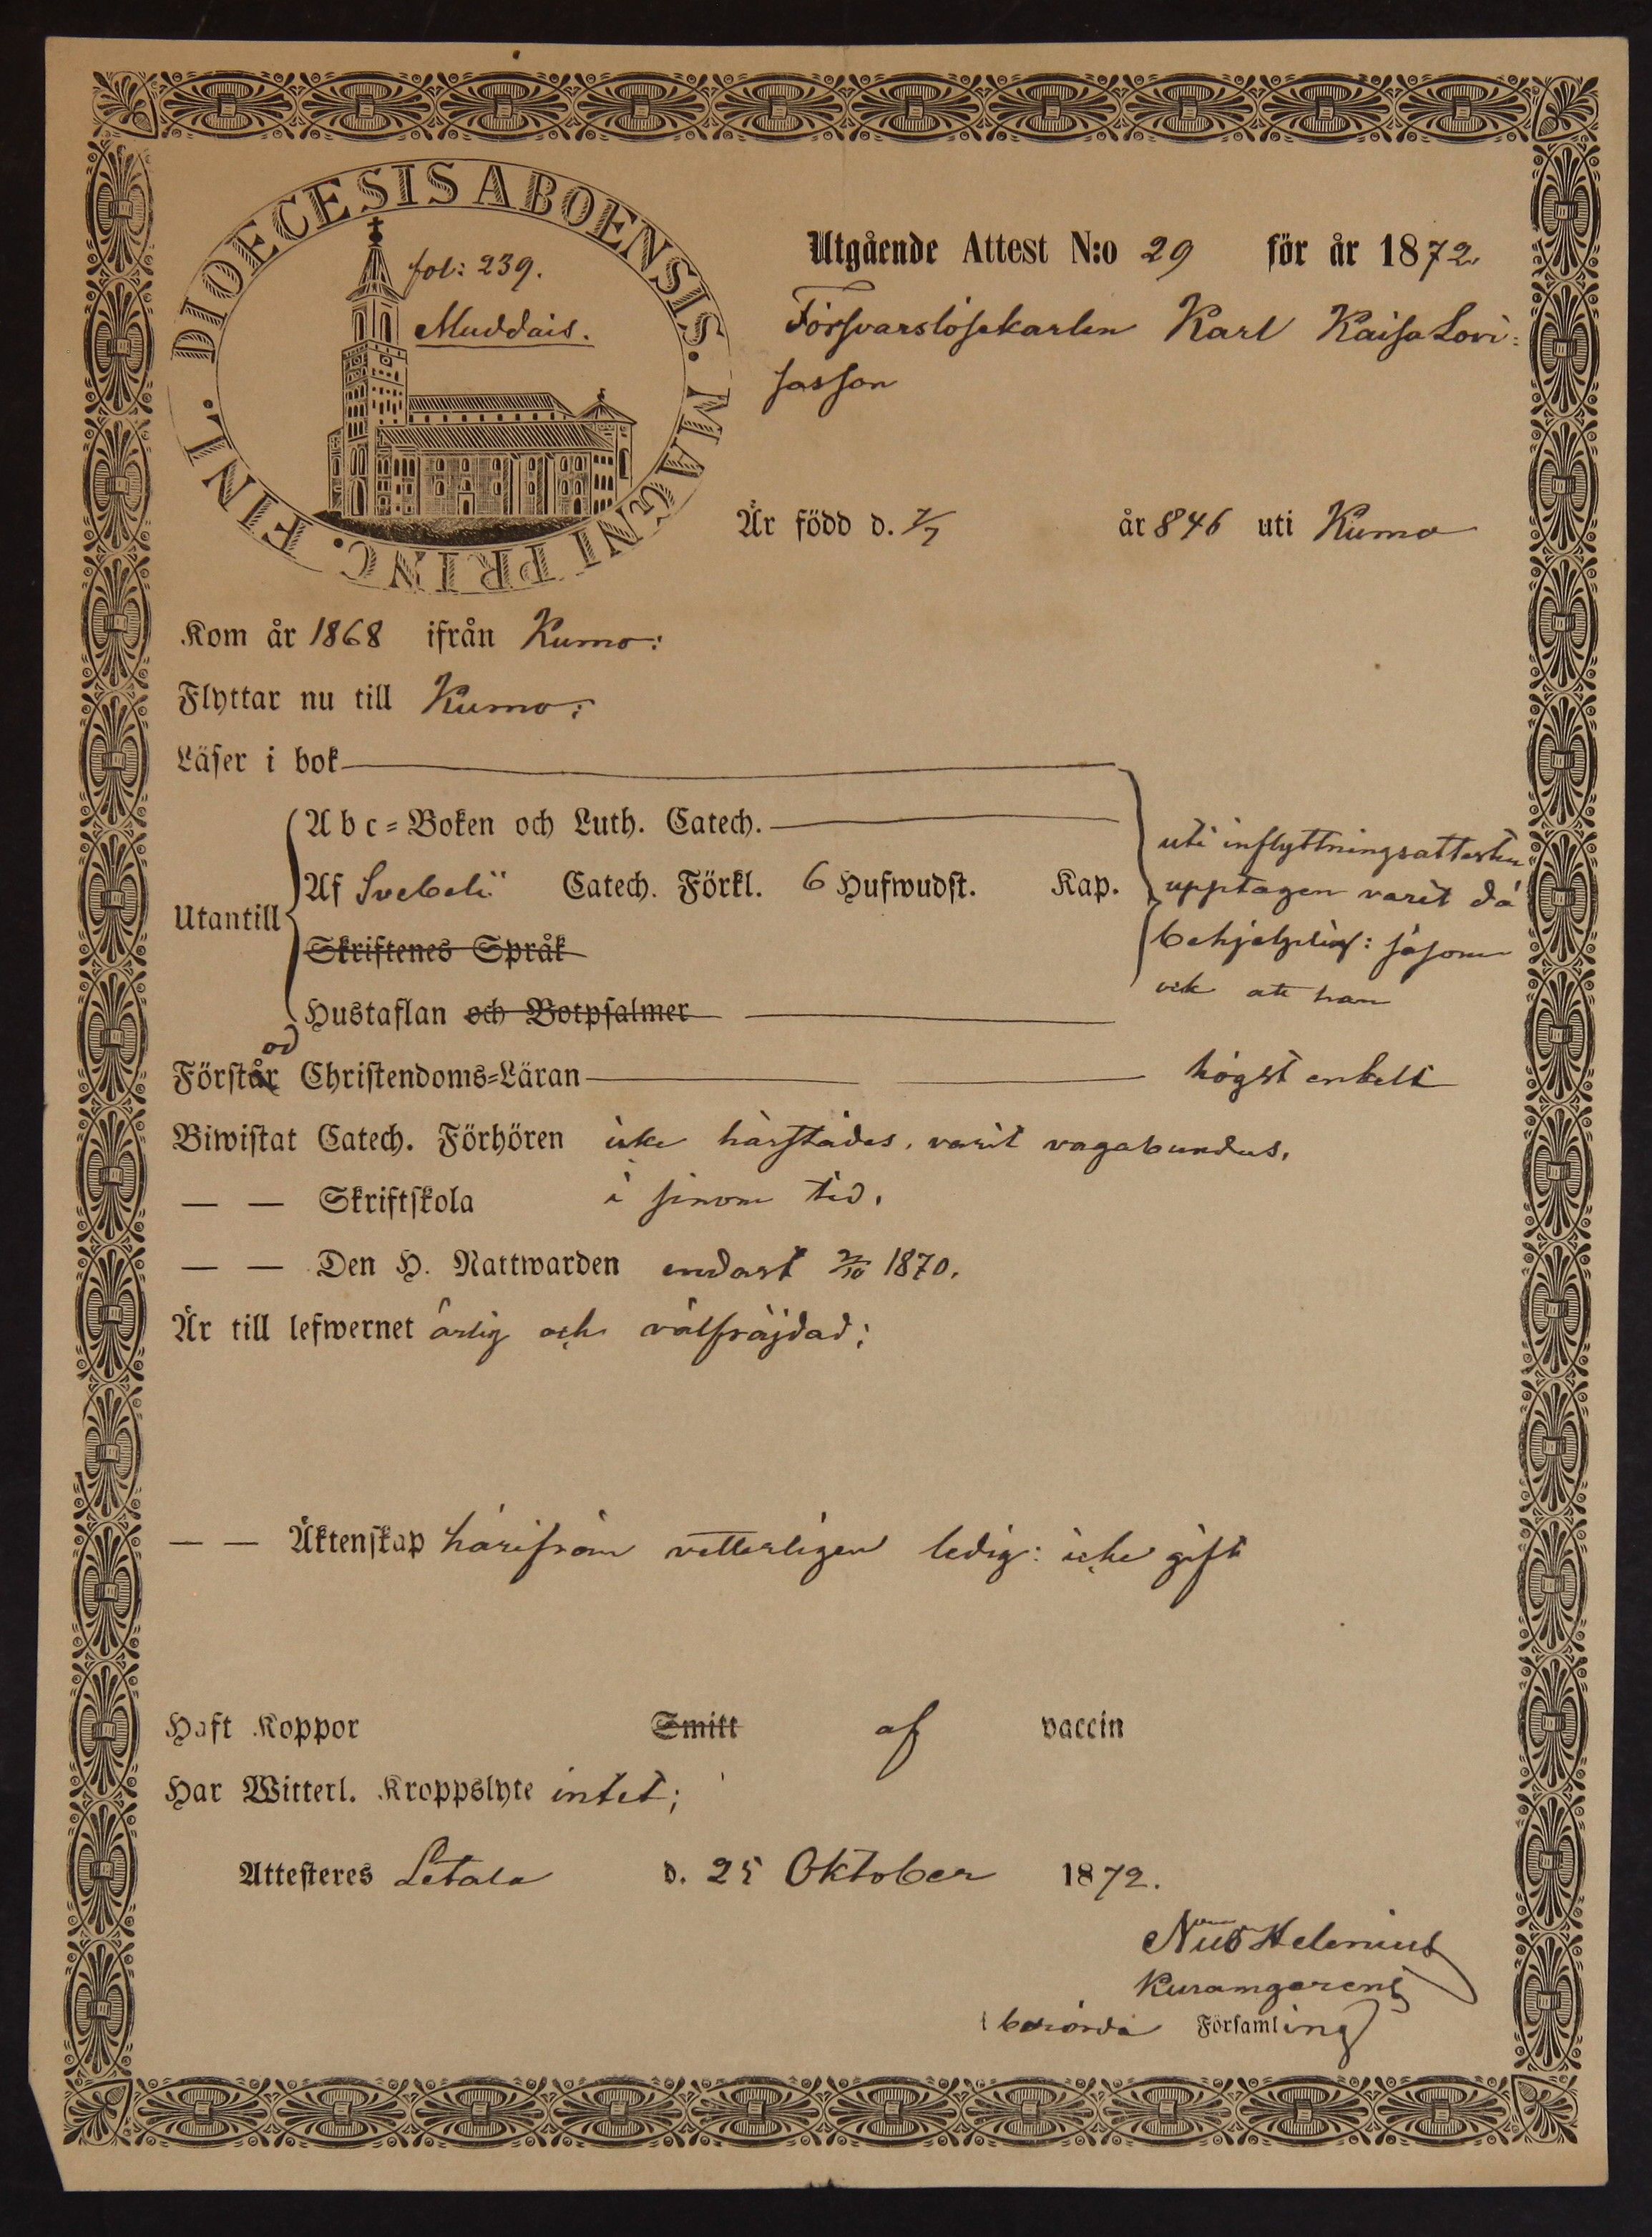 DIOECESIS ABOENSIS. MAGNI PRINC. FINL.
fol: 239.
Muddais.
Utgående Attest N:o 29 för år 1872.
Försvarslösekarlen Karl Kaisa Lovi:
sasson
Är född d. 7/7 år 846 uti Kumo
Kom år 1868 ifrån Kumo:
Flyttar nu till Kumo:
Läser i bok
Utantill
A b c-Boken och Luth. Catech.
Af Svebelii Catech. Förkl. 6 Hufwudst. Kap.
Skriftenes Språk
Hustaflan och Botpsalmer
uti inflyttningsattesten
upptagen varit då
behjelplig: såsom
ock att han
Förstår od Christendoms-Läran högst enkelt
Biwistat Catech. Förhören icke härstädes, varit vagabundus.
— — Skriftskola i sinom tid.
— — Den H. Nattwarden endast 2/10 1870.
Är till lefwernet ärlig och välfräjdad;
— — Äktenskap härifrån vetterligen ledig: icke gift
Haft Koppor Smitt af vaccin
Har Witterl. Kroppslyte intet;
Attesteres Letala d. 25 Oktober 1872.
Nils Helenius
Kuramgerens
i berörda Församling